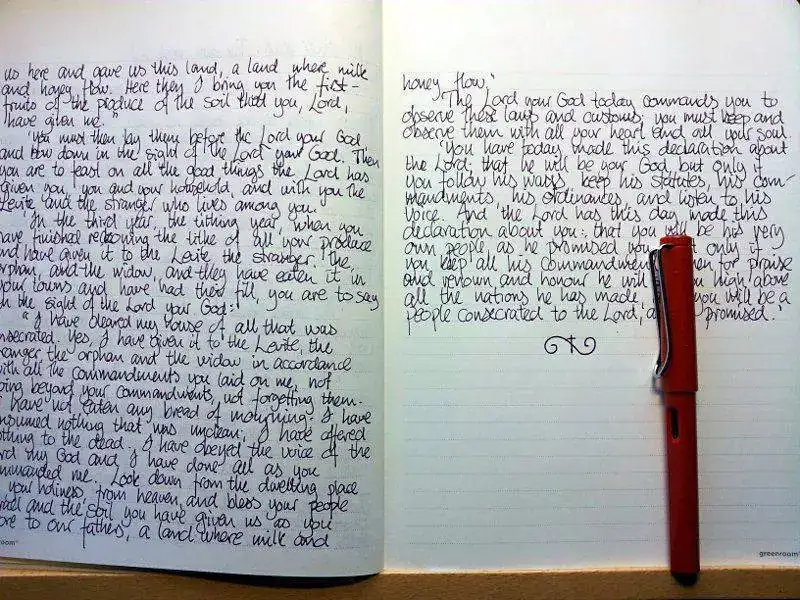 us here and gave us this land, a land where milk
and honey flow. Here then I bring you the first-
fruits of the produce of the soil that you, Lord,
have given me."
"You must then lay them before the Lord your God
and bow down in the sight of the Lord your God. Then
you are to feast on all the good things the Lord has
given you, you and your household, and with you the
Levite and the stranger who lives among you.
"In the third year, the tithing year, when you
have finished reckoning the tithe of all your produce
and have given it to the Levite the stranger, the
orphan, and the widow, and they have eaten it in
your towns and have had their fill, you are to say
in the sight of the Lord your God:
"I have cleared my house of all that was
nsecrated. Yes, I have given it to the Levite, the
ranger the orphan and the widow in accordance
with all the commandments you laid on me, not
oing beyond your commandments, not forgetting them.
I have not eaten any bread of mourning; I have
onsumed nothing that was unclean; I have offered
othing to the dead. I have obeyed the voice of the
ord my God and I have done all as you
mmanded me. Look down from the dwelling place
your holiness, from heaven, and bless your people
rael and the soil you have given us as you
ore to our fathers, a land where milk and
room®
honey flow."
"The Lord your God today commands you to
observe these laws and customs; you must keep and
observe them with all your heart and all your soul.
"You have today made this declaration about
the Lord: that he will be your God, but only if
you follow his ways, keep his statutes, his com-
mandments, his ordinances, and listen to his
voice. And the Lord has this day made this
declaration about you: that you will be his very
own people, as he promised you, only if
you keep all his commandmen then for praise
and renown and honour he will you high above
all the nations he has made, you will be a
people consecrated to the Lord, a promised."
greenroom®